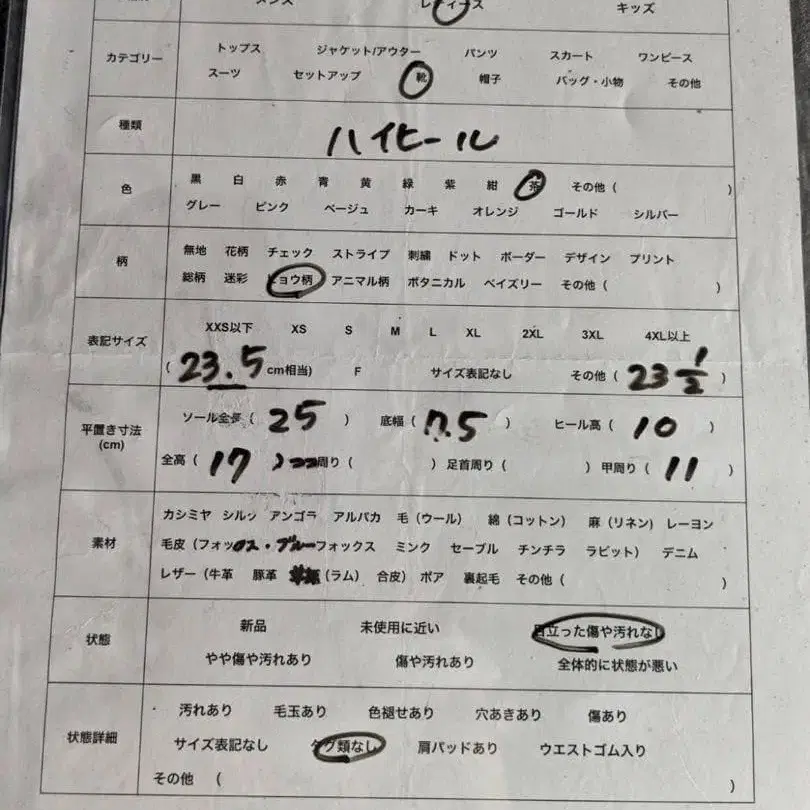 メンズ レディース キッズ
カテゴリー トップス ジャケット/アウター パンツ スカート ワンピース
スーツ セットアップ 靴 帽子 バッグ・小物 その他
種類 ハイヒール
色 黒 白 赤 青 黄 緑 紫 紺 茶 その他 ( )
グレー ピンク ベージュ カーキ オレンジ ゴールド シルバー
柄 無地 花柄 チェック ストライプ 刺繍 ドット ボーダー デザイン プリント
総柄 迷彩 ヒョウ柄 アニマル柄 ボタニカル ペイズリー その他 ( )
表記サイズ XXS以下 XS S M L XL 2XL 3XL 4XL以上
( 23.5 cm相当) F サイズ表記なし その他 ( 23 1/2 )
平置き寸法 (cm) ソール全長 ( 25 ) 底幅 ( 7.5 ) ヒール高 ( 10 )
全高 ( 17 ) 周り ( ) 足首周り ( ) 甲周り ( 11 )
素材 カシミヤ シルク アンゴラ アルパカ 毛 (ウール) 綿 (コットン) 麻 (リネン) レーヨン
毛皮 (フォックス・ブルーフォックス ミンク セーブル チンチラ ラビット) デニム
レザー (牛革 豚革 (ラム) 合皮) ボア 裏起毛 その他 ( )
状態 新品 未使用に近い 目立った傷や汚れなし
やや傷や汚れあり 傷や汚れあり 全体的に状態が悪い
状態詳細 汚れあり 毛玉あり 色褪せあり 穴あきあり 傷あり
サイズ表記なし タグ類なし 肩パッドあり ウエストゴム入り
その他 ( )